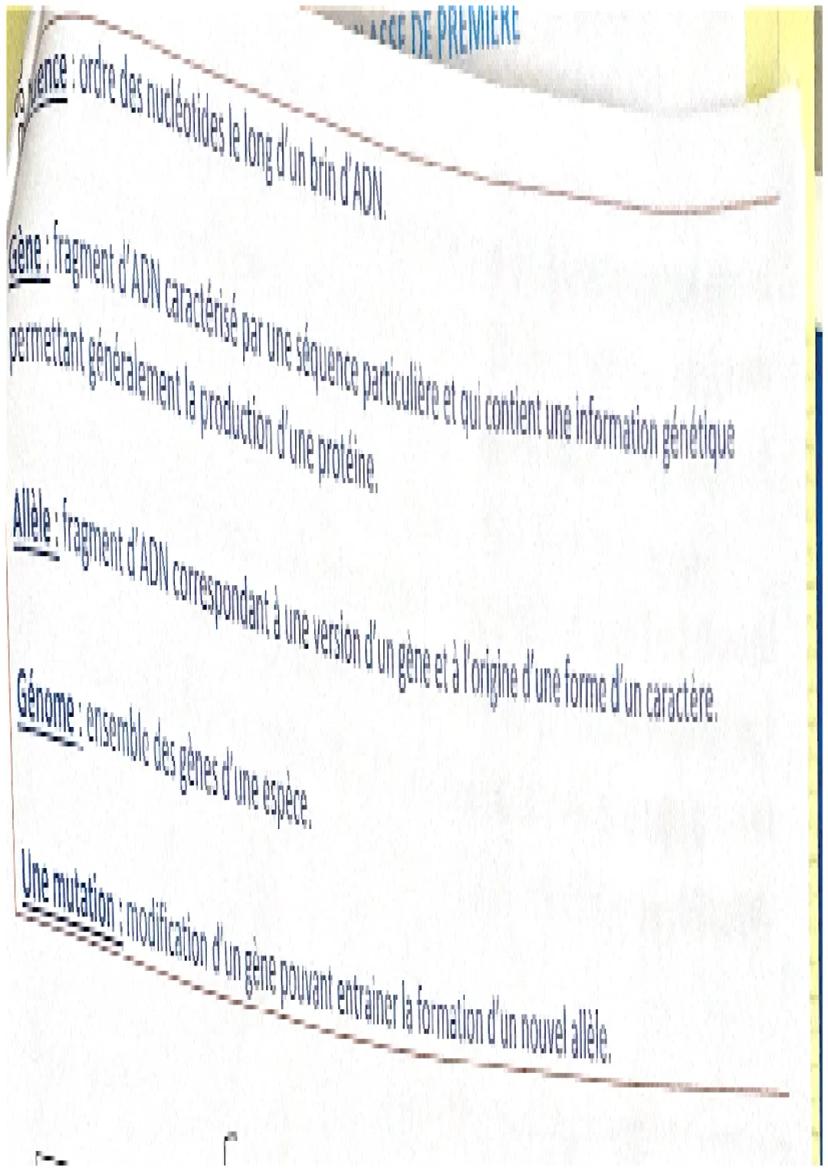 CLASSE DE PREMIÈRE
ordre des nucléotides le long d'un brin d'ADN.
Gène : fragment d'ADN caractérisé par une séquence particulière et qui contient une information génétique
permettant généralement la production d'une protéine.
Allèle : fragment d'ADN correspondant à une version d'un gène et à l'origine d'une forme d'un caractère.
Génome : ensemble des gènes d'une espèce.
Une mutation : modification d'un gène pouvant entrainer la formation d'un nouvel allèle.